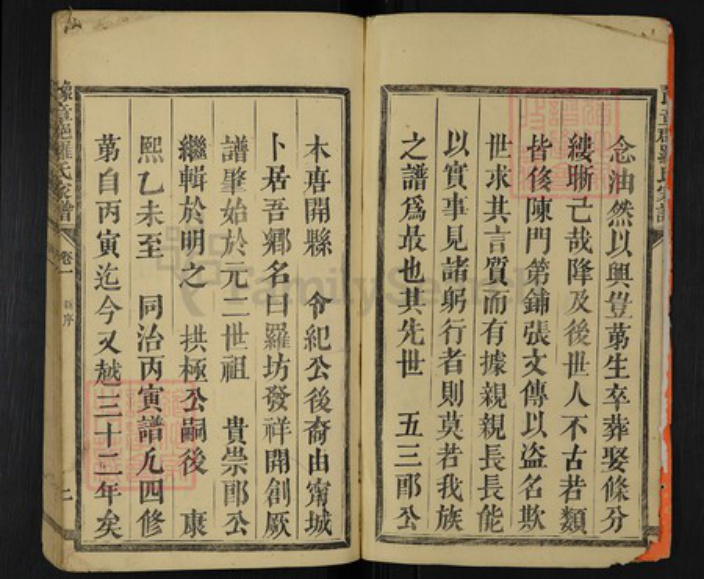 念油然以興豈第生卒葬娶條分
縷晣已哉降及後世人不古若類
皆侈陳門第鋪張文傳以盜名欺
世求其言質而有據親親長長能
以實事見諸躬行者則莫若我族
之譜爲最也其先世 五三郎公
木唐開縣 令紀公後裔由甯城
卜居吾鄉名曰羅坊發祥開創厥
譜肇始於元二世祖 貴崇郎公
繼輯於明之 拱極公嗣後 康
熙乙未至 同治丙寅譜凡四修
第自丙寅迄今又越三十二年矣
豫章郡羅氏家譜
卷一
序
FamilySearch